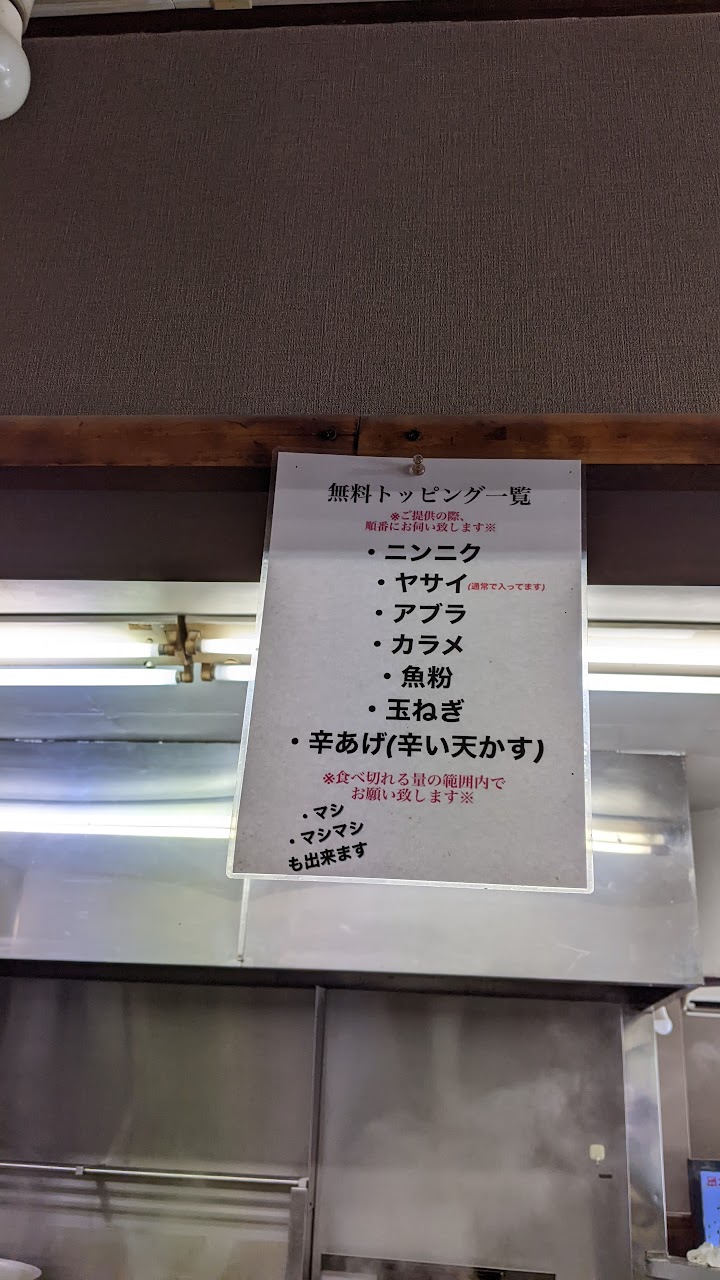 無料トッピング一覧
※ご提供の際、
順番にお伺い致します※
・ニンニク
・ヤサイ(通常で入ってます)
・アブラ
・カラメ
・魚粉
・玉ねぎ
・辛あげ(辛い天かす)
※食べ切れる量の範囲内で
お願い致します※
・マシ
・マシマシ
も出来ます